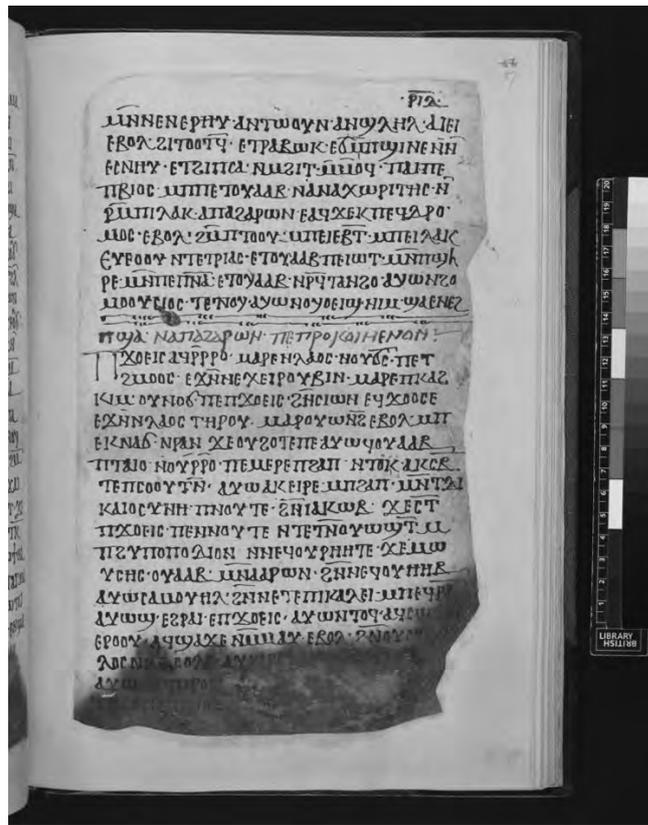 ·ⲣⲓⲁ
ⲙⲛⲛⲉⲛⲉⲣⲏⲩ·ⲁⲛⲧⲱⲟⲩⲛ·ⲁⲛϣⲗⲏⲗ·ⲁⲓⲉⲓ
ⲉⲃⲟⲗϩⲓⲧⲟⲟⲧϥ· ⲉⲧⲣⲁⲃⲱⲕ·ⲉϭⲙⲡϣⲓⲛⲉⲛⲛ
ⲉⲥⲛⲏⲩ·ⲉⲧϩⲓⲡⲥⲁ·ⲛⲙϩⲓⲧ·ⲙⲙⲟϥ·ⲡⲁⲓⲡⲉ
ⲡⲃⲓⲟⲥ·ⲙⲡⲡⲉⲧⲟⲩⲁⲁⲃ·ⲛⲁⲛⲁⲭⲱⲣⲓⲧⲏⲥ·ⲛ
ⲣⲙⲡⲓⲗⲁⲕ·ⲁⲡⲁϩⲁⲣⲱⲛ·ⲉⲁϥϫⲉⲕⲡⲉϥⲇⲣⲟ·
ⲙⲟⲥ·ⲉⲃⲟⲗ·ϩⲙⲡⲧⲟⲟⲩ·ⲙⲡⲉⲓⲉⲃⲧ·ⲙⲡⲉⲓⲗⲁⲕ
ⲉⲩⲉⲟⲟⲩ ⲛⲧⲉⲧⲣⲓⲁⲥ·ⲉⲧⲟⲩⲁⲁⲃⲡⲉⲓⲱⲧ·ⲙⲛⲡϣⲏ
ⲣⲉ·ⲙⲛⲡⲉⲡⲛⲁ·ⲉⲧⲟⲩⲁⲁⲃ·ⲛⲣϥⲧⲁⲛϩⲟ·ⲁⲩⲱⲛϩⲟ
ⲙⲟⲟⲩⲥⲓⲟⲥ·ⲧⲉⲛⲟⲩ·ⲁⲩⲱⲛⲟⲩⲟⲉⲓϣ·ⲛⲓⲙ·ϣⲁⲉⲛⲉϩ
ⲡϣⲁ· ⲛⲁⲡⲁϩⲁⲣⲱⲛ· ⲡⲉⲡⲣⲟⲕⲓⲙⲉⲛⲟⲛ:
ⲡϫⲟⲉⲓⲥⲁϥⲣⲣⲣⲟ·ⲙⲁⲣⲉⲛⲗⲁⲟⲥ·ⲛⲟⲩϭⲥ·ⲡⲉⲧ
ϩⲙⲟⲟⲥ·ⲉϫⲛⲛⲉⲭⲉⲓⲣⲟⲩⲃⲓⲛ·ⲙⲁⲣⲉⲡⲕⲁϩ
ⲕⲓⲙ·ⲟⲩⲛⲟϭ·ⲡⲉⲡϫⲟⲉⲓⲥ·ϩⲛⲥⲓⲱⲛ ⲉϥϫⲟⲟⲥⲉ
ⲉϫⲛⲛⲗⲁⲟⲥ ⲧⲏⲣⲟⲩ· ⲙⲁⲣⲟⲩⲱⲛϩⲉⲃⲟⲗ·ⲙⲡ
ⲉⲕⲛⲁϭ·ⲛⲣⲁⲛ ϫⲉⲟⲩϩⲟⲧⲉⲡⲉⲁⲩⲱϥⲟⲩⲁⲁⲃ
ⲡⲧⲁⲓⲟ·ⲛⲟⲩⲣⲣⲟ·ⲡⲉⲙⲉⲣⲉⲡϩⲁⲡ ⲛⲧⲟⲕ·ⲁⲕⲥⲃ
ⲧⲉⲡⲥⲟⲟⲩⲧⲛ· ⲁⲩⲱⲁⲕⲉⲓⲣⲉ·ⲙⲡϩⲁⲡ·ⲙⲛⲧⲇⲓ
ⲕⲁⲓⲟⲥⲩⲛⲏ·ⲡⲛⲟⲩⲧⲉ·ϩⲛⲓⲁⲕⲱⲃ· ϫⲉⲥⲧ
ⲡϫⲟⲉⲓⲥ·ⲡⲉⲛⲛⲟⲩⲧⲉ ⲛⲧⲉⲧⲛⲟⲩⲱϣⲧ·ⲙ
ⲡϩⲩⲡⲟⲡⲟⲇⲓⲟⲛ ⲛⲛⲉϥⲟⲩⲣⲏⲏⲧⲉ·ϫⲉⲙⲱ
ⲩⲥⲏⲥ·ⲟⲩⲁⲁⲃ·ⲙⲛⲁⲁⲣⲱⲛ·ϩⲛⲛⲉϥⲟⲩⲏⲏⲃ
ⲁⲩⲱⲥⲁⲙⲟⲩⲏⲗ·ϩⲛⲛⲉⲧⲉⲡⲓⲕⲁⲗⲉⲓ·ⲙⲡⲉϥⲣ
ⲁⲩⲱϣ·ⲉϩⲣⲁⲓ·ⲉⲡϫⲟⲉⲓⲥ·ⲁⲩⲱⲛⲧⲟϥ·ⲁϥⲥⲱ
ⲉⲣⲟⲟⲩ·ⲁϥϣⲁϫⲉⲛⲙⲙⲁⲩ·ⲉⲃⲟⲗ·ϩⲛⲟⲩⲥ